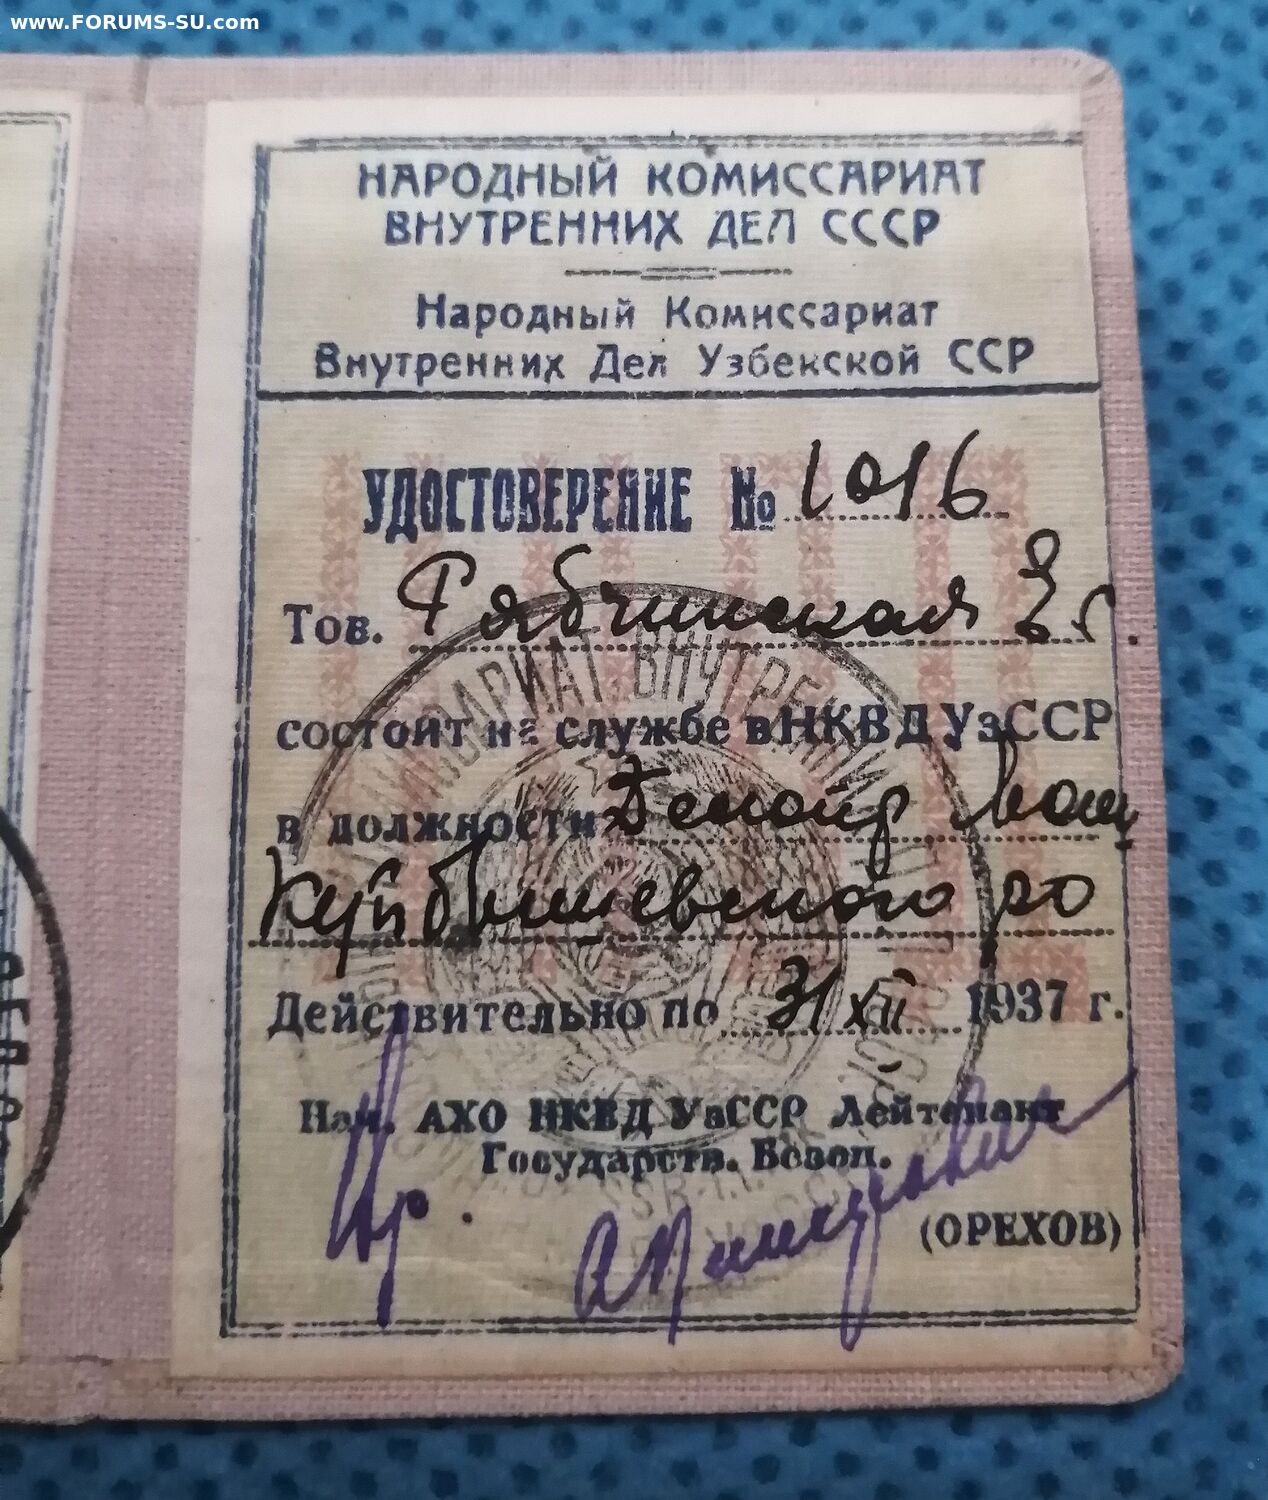 www.FORUMS-SU.com
НАРОДНЫЙ КОМИССАРИАТ
ВНУТРЕННИХ ДЕЛ СССР
Народный Комиссариат
Внутренних Дел Узбекской ССР
УДОСТОВЕРЕНИЕ № 1016
Тов. Рябчинская Е Г.
состоит на службе в НКВД УзССР
в должности Делопр Маш
Куйбышевского РО
Действительно по 31 XII 1937 г.
Нач. АХО НКВД УзССР Лейтенант
Государств. Безоп.
(ОРЕХОВ)